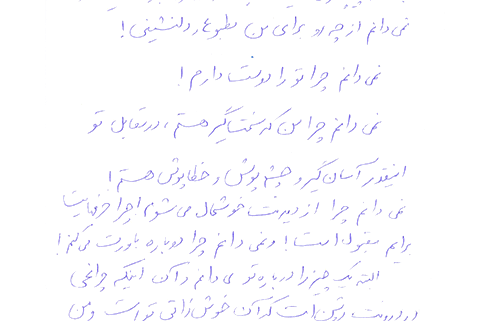 نمی دانم از چه رو برای من مطبوع و دلنشینی!
نمی دانم چرا تو را دوست دارم!
نمی دانم چرا من که سختگیر هستم، در مقابل تو
اینقدر آسان گیر و چشم پوش و خطاپوش هستم!
نمی دانم چرا از دیدنت خوشحال می شوم! چرا حرفهایت
برایم مقبول است! و نمی دانم چرا دوباره باورت می کنم!
البته یک چیز را درباره تو می دانم و آن اینکه چراغی
در درونت روشن است که آن خوش ذاتی تو است و من